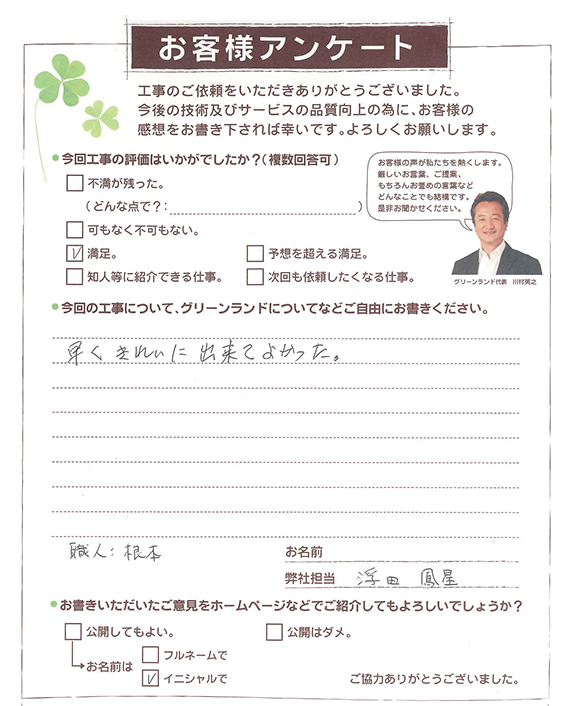 お客様アンケート
工事のご依頼をいただきありがとうございました。
今後の技術及びサービスの品質向上の為に、お客様の
感想をお書き下されば幸いです。よろしくお願いします。
●今回工事の評価はいかがでしたか?(複数回答可)
不満が残った。
(どんな点で?: )
可もなく不可もない。
満足。
予想を超える満足。
知人等に紹介できる仕事。
次回も依頼したくなる仕事。
お客様の声が私たちを熱くします。
厳しいお言葉、ご提案、
もちろんお誉めの言葉など
どんなことでも結構です。
是非お聞かせください。
グリーンランド代表 川村英之
●今回の工事について、グリーンランドについてなどご自由にお書きください。
早くきれいに出来てよかった。
職人:根本
お名前
弊社担当 浮田 鳳星
●お書きいただいたご意見をホームページなどでご紹介してもよろしいでしょうか?
公開してもよい。
公開はダメ。
お名前は
フルネームで
イニシャルで
ご協力ありがとうございました。